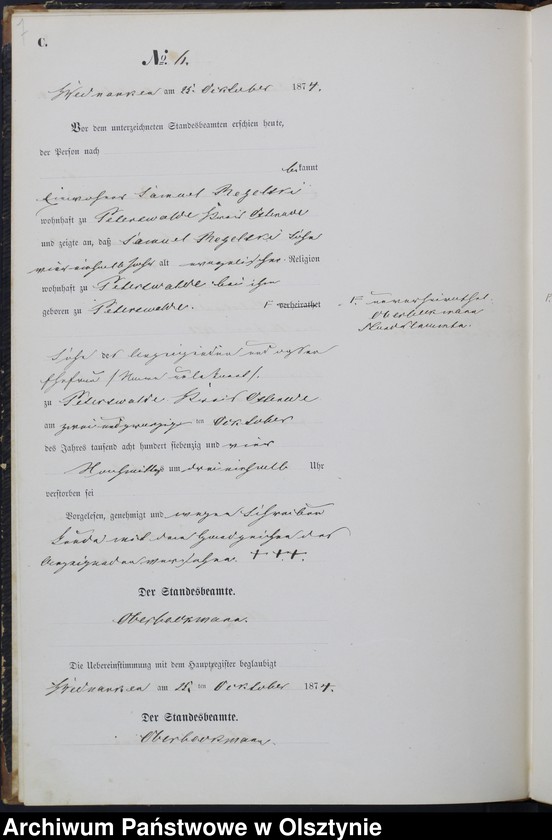 7
C.
No. 6.
am 25. October 1874.
Vor dem unterzeichneten Standesbeamten erschien heute,
der Person nach
bekannt
Einwohner Samuel
wohnhaft zu Peterswalde Kreis Osterode
und zeigte an, daß Samuel Sohn
vier einhalb Jahr alt evangelischer Religion
wohnhaft zu Peterswalde bei ihm
geboren zu Peterswalde. F verheirathet
F. unverheirathet.
Oberbeckmann
Standesbeamte.
Sohn des Anzeigenden und
Ehefrau
zu Peterswalde Kreis Osterode
am zwei und zwanzig ten October
des Jahres tausend acht hundert siebenzig und vier
Nachmittags um drei einhalb Uhr
verstorben sei
Vorgelesen, genehmigt und wegen Schreiben
mit dem Handzeichen des
Anzeigenden versehen. + + +.
Der Standesbeamte.
Oberbeckmann.
Die Uebereinstimmung mit dem Hauptregister beglaubigt
am 25. ten October 1874.
Der Standesbeamte.
Oberbeckmann.
Archiwum Państwowe w Olsztynie